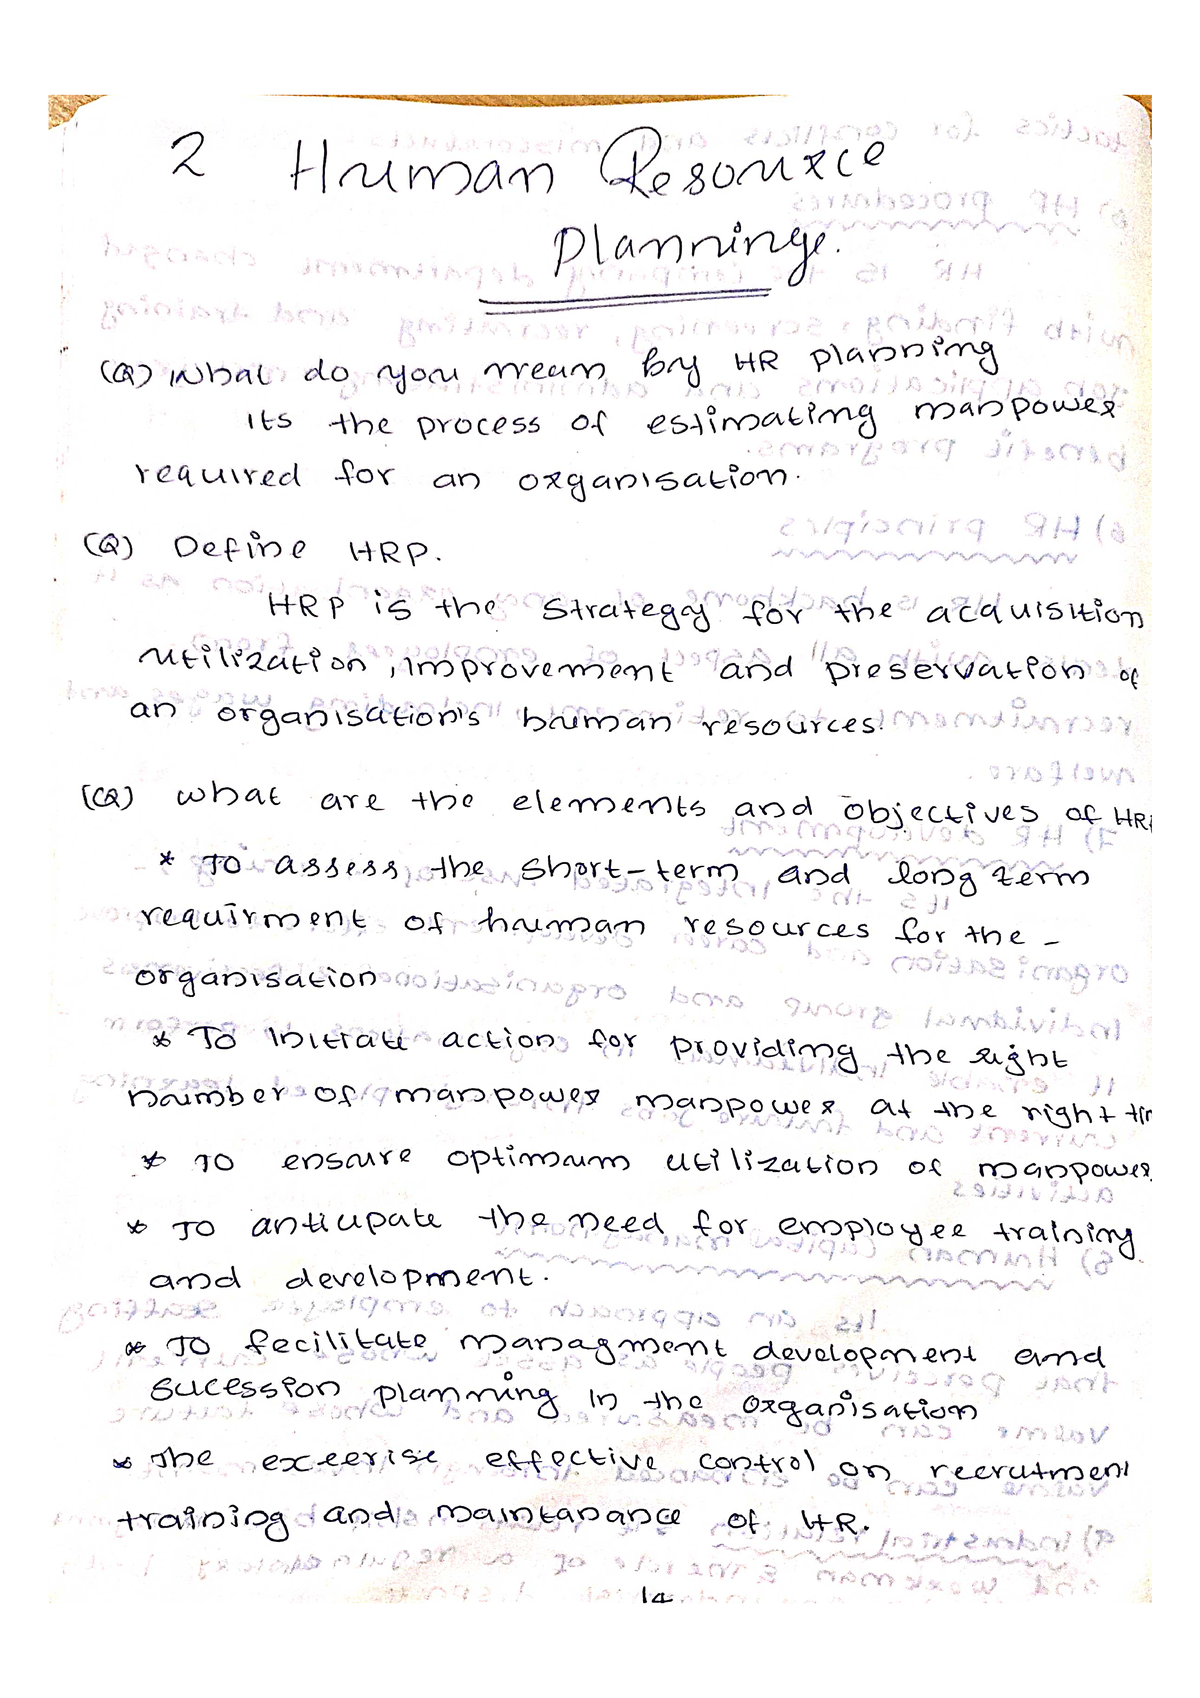 2 Human Resource
Planning.
(Q) What do you mean by HR planning
Its the process of estimating manpower
required for an organisation.
(Q) Define HRP.
HRP is the strategy for the acquisition
utilization, improvement and preservation of
an organisation's human resources.
(Q) what are the elements and objectives of HR
* To assess the short-term and long term
requirment of human resources for the -
organisation
* To Initiate action for providing the right
number of manpower manpower at the right
* To ensure optimum utilization of manpower
* To anticipate the need for employee training
and development.
* To fecilitate managment development and
sucession planning in the organisation
* The exeerise effective control on recrutment
training and maintanance of HR.